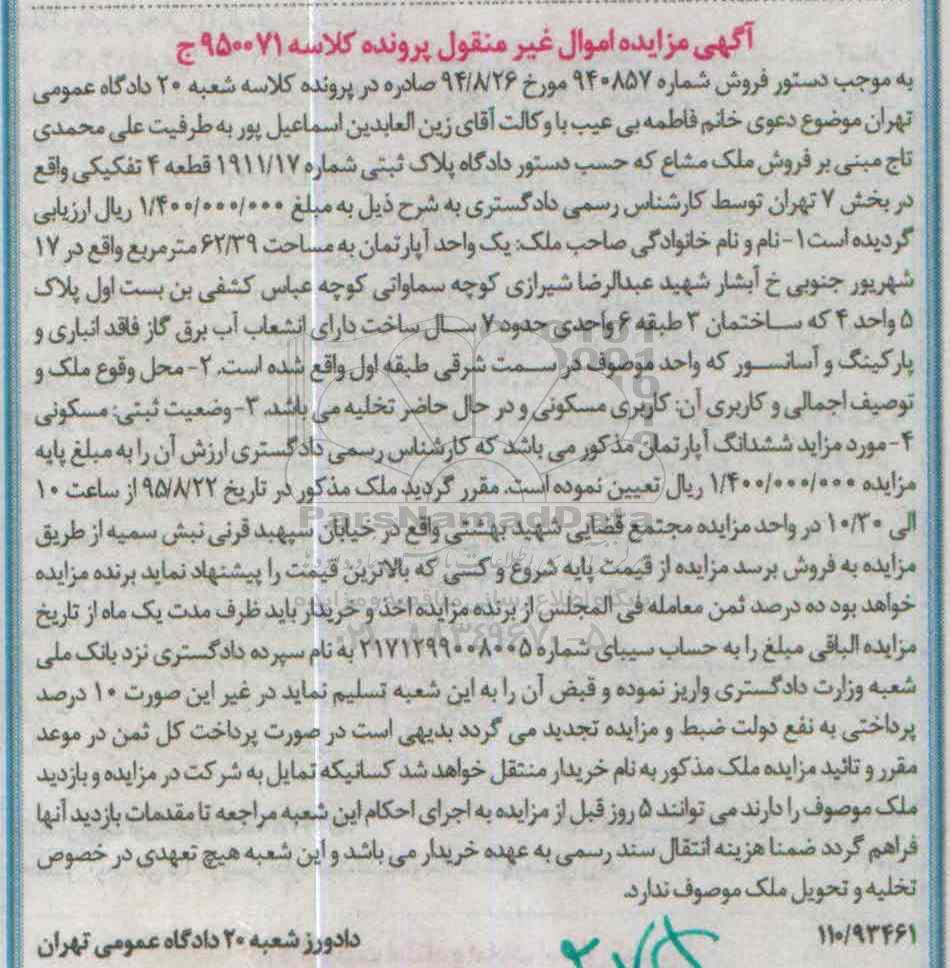 آگهی مزایده اموال غیر منقول پرونده کلاسه ۹۵۰۰۷۱ ج
به موجب دستور فروش شماره ۹۴۰۸۵۷ مورخ ۹۴/۸/۲۶ صادره در پرونده کلاسه شعبه ۲۰ دادگاه عمومی
تهران موضوع دعوی خانم فاطمه بی عیب با وکالت آقای زین العابدین اسماعیل پور به طرفیت علی محمدی
تاج مبنی بر فروش ملک مشاع که حسب دستور دادگاه پلاک ثبتی شماره ۱۹۱۱/۱۷ قطعه ۴ تفکیکی واقع
در بخش ۷ تهران توسط کارشناس رسمی دادگستری به شرح ذیل به مبلغ ۱/۴۰۰/۰۰۰/۰۰۰ ریال ارزیابی
گردیده است۱- نام و نام خانوادگی صاحب ملک: یک واحد آپارتمان به مساحت ۶۲/۳۹ مترمربع واقع در ۱۷
شهریور جنوبی خ آبشار شهید عبدالرضا شیرازی کوچه سماواتی کوچه عباس کشفی بن بست اول پلاک
۵ واحد ۴ که ساختمان ۳ طبقه ۶ واحدی حدود ۷ سال ساخت دارای انشعاب آب برق گاز فاقد انباری و
پارکینگ و آسانسور که واحد موصوف در سمت شرقی طبقه اول واقع شده است. ۲- محل وقوع ملک و
توصیف اجمالی و کاربری آن: کاربری مسکونی و در حال حاضر تخلیه می باشد. ۳- وضعیت ثبتی: مسکونی
۴- مورد مزاید ششدانگ آپارتمان مذکور می باشد که کارشناس رسمی دادگستری ارزش آن را به مبلغ پایه
مزایده ۱/۴۰۰/۰۰۰/۰۰۰ ریال تعیین نموده است. مقرر گردید ملک مذکور در تاریخ ۹۵/۸/۲۲ از ساعت ۱۰
الی ۱۰/۳۰ در واحد مزایده مجتمع قضایی شهید بهشتی واقع در خیابان سپهبد قرنی نبش سمیه از طریق
مزایده به فروش برسد مزایده از قیمت پایه شروع و کسی که بالاترین قیمت را پیشنهاد نماید برنده مزایده
خواهد بود ده درصد ثمن معامله فی المجلس از برنده مزایده اخذ و خریدار باید ظرف مدت یک ماه از تاریخ
مزایده الباقی مبلغ را به حساب سیبای شماره ۲۱۷۱۲۹۹۰۰۸۰۰۵ به نام سپرده دادگستری نزد بانک ملی
شعبه وزارت دادگستری واریز نموده و قبض آن را به این شعبه تسلیم نماید در غیر این صورت ۱۰ درصد
پرداختی به نفع دولت ضبط و مزایده تجدید می گردد بدیهی است در صورت پرداخت کل ثمن در موعد
مقرر و تائید مزایده ملک مذکور به نام خریدار منتقل خواهد شد کسانیکه تمایل به شرکت در مزایده و بازدید
ملک موصوف را دارند می توانند ۵ روز قبل از مزایده به اجرای احکام این شعبه مراجعه تا مقدمات بازدید آنها
فراهم گردد ضمنا هزینه انتقال سند رسمی به عهده خریدار می باشد و این شعبه هیچ تعهدی در خصوص
تخلیه و تحویل ملک موصوف ندارد.
۱۱۰/۹۳۴۶۱
دادورز شعبه ۲۰ دادگاه عمومی تهران
ParsNamadData